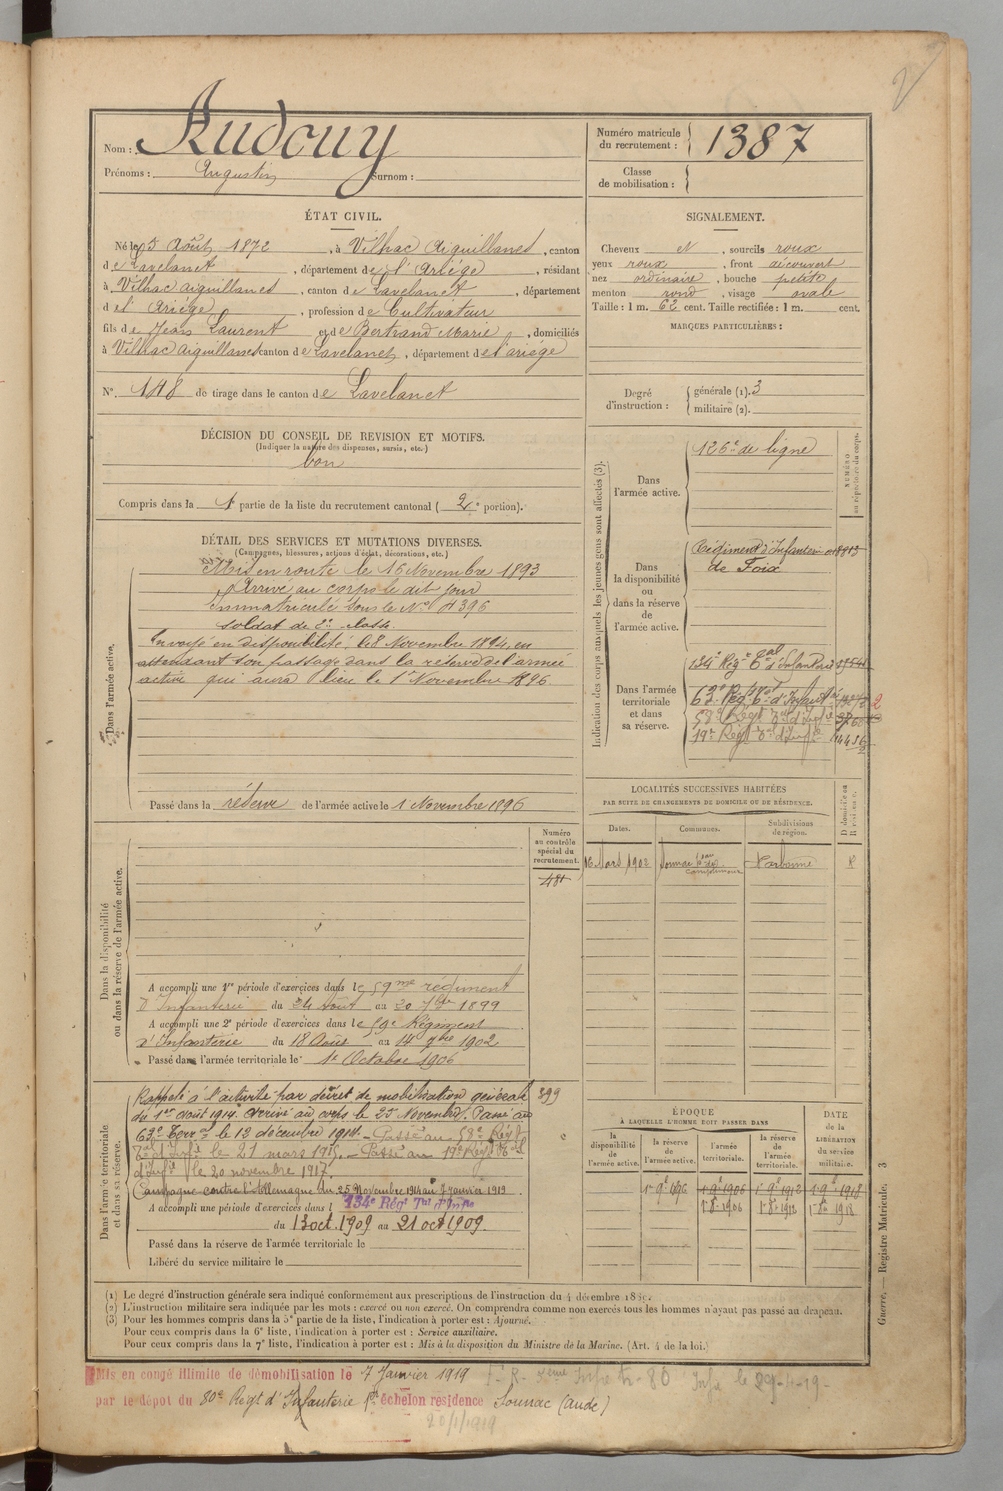 2
Nom : Audouy
Prénoms : Augustin Surnom :
Numéro matricule du recrutement : 1387
Classe de mobilisation :
ÉTAT CIVIL.
Né le 5 Août 1872, à Vilhac Aiguillanes, canton
de Lavelanet, département de l'Ariége, résidant
à Vilhac aiguillanes, canton de Lavelanet, département
d el' Ariége, profession de Cultivateur
fils de Jean Laurent et de Bertrand Marie, domiciliés
à Vilhac Aiguillanes canton de Lavelanet, département de l'ariége
N° 148 de tirage dans le canton de Lavelanet
SIGNALEMENT.
Cheveux , sourcils roux
yeux roux, front découvert
nez ordinaire, bouche petite
menton rond, visage ovale
Taille : 1 m. 62 cent. Taille rectifiée : 1 m. cent.
MARQUES PARTICULIÈRES :
Degré d'instruction : générale (1). 3
militaire (2).
DÉCISION DU CONSEIL DE REVISION ET MOTIFS.
(Indiquer la nature des dispenses, sursis, etc.)
bon
Compris dans la 1e partie de la liste du recrutement cantonal ( 2e portion).
DÉTAIL DES SERVICES ET MUTATIONS DIVERSES.
(Campagnes, blessures, actions d'éclat, décorations, etc.)
Dans l'armée active.
Mis en route le 16 Novembre 1893
Arrivé au corps le dit jour
immatriculé sous le N° 4396
soldat de 2e classe
Envoyé en disponibilité le 8 Novembre 1894, en
attendant son passage dans la réserve de l'armée
active qui aura lieu le 1er Novembre 1896
Passé dans la réserve de l'armée active le 1 Novembre 1896
Indication des corps auxquels les jeunes gens sont affectés (3).
NUMÉRO au répertoire du corps.
Dans l'armée active.
126e de ligne
Dans la disponibilité ou dans la réserve de l'armée active.
Régiment d'Infanterie
de Foix
Dans l'armée territoriale et dans sa réserve.
134e Régt Tal d'Infanterie
63e Régt Tal d'Infant
58e Régt Tal d'Infie
19e Régt Tal d'Infie
LOCALITÉS SUCCESSIVES HABITÉES
PAR SUITE DE CHANGEMENTS DE DOMICILE OU DE RÉSIDENCE.
Dates. Communes. Subdivisions de région. D domicile ou R résidence.
16 Mars 1902 Narbonne R
Dans la disponibilité ou dans la réserve de l'armée active.
Numéro au contrôle spécial du recrutement.
A accompli une 1re période d'exercices dans le 59me régiment
d'Infanterie du 24 Août au 20 7bre 1899
A accompli une 2e période d'exercices dans le 59e Régiment
d'Infanterie du 18 Août au 14 7bre 1902
Passé dans l'armée territoriale le 1er Octobre 1906
Dans l'armée territoriale et dans sa réserve.
Rappelé à l'activité par décret de mobilisation générale 399
du 1er août 1914. Arrivé au corps le 25 Novembre. Passé au
63e Terral le 12 décembre 1914. Passé au 58e Régt
Tal d'Infie le 21 mars 1915. Passé au 19e Régt Tal
d'Infie le 20 novembre 1917
Campagne contre l'Allemagne du 25 Novembre 1914 au 7 janvier 1919
A accompli une période d'exercices dans l 134e Régt Tal d'Infie
du 13 oct. 1909 au 21 oct 1909
Passé dans la réserve de l'armée territoriale le
Libéré du service militaire le
ÉPOQUE
À LAQUELLE L'HOMME DOIT PASSER DANS
la disponibilité de l'armée active. la réserve de l'armée active. l'armée territoriale. la réserve de l'armée territoriale. DATE de la LIBÉRATION du service militaire.
1er 9e 1896 1er 9e 1906 1er 9e 1912 1er 9e 1918
1er 8e 1906 1er 8e 1912 1er 8e 1918
(1) Le degré d'instruction générale sera indiqué conformément aux prescriptions de l'instruction du 4 décembre
(2) L'instruction militaire sera indiquée par les mots : exercé ou non exercé. On comprendra comme non exercés tous les hommes n'ayant pas passé au drapeau.
(3) Pour les hommes compris dans la 5e partie de la liste, l'indication à porter est : Ajourné.
Pour ceux compris dans la 6e liste, l'indication à porter est : Service auxiliaire.
Pour ceux compris dans la 7e liste, l'indication à porter est : Mis à la disposition du Ministre de la Marine. (Art. 4 de la loi.)
Guerre. — Registre Matricule. 3
Mis en congé illimité de démobilisation le 7 Janvier 1919
par le dépot du 80e Régt d'Infanterie 1er échelon residence (aude)